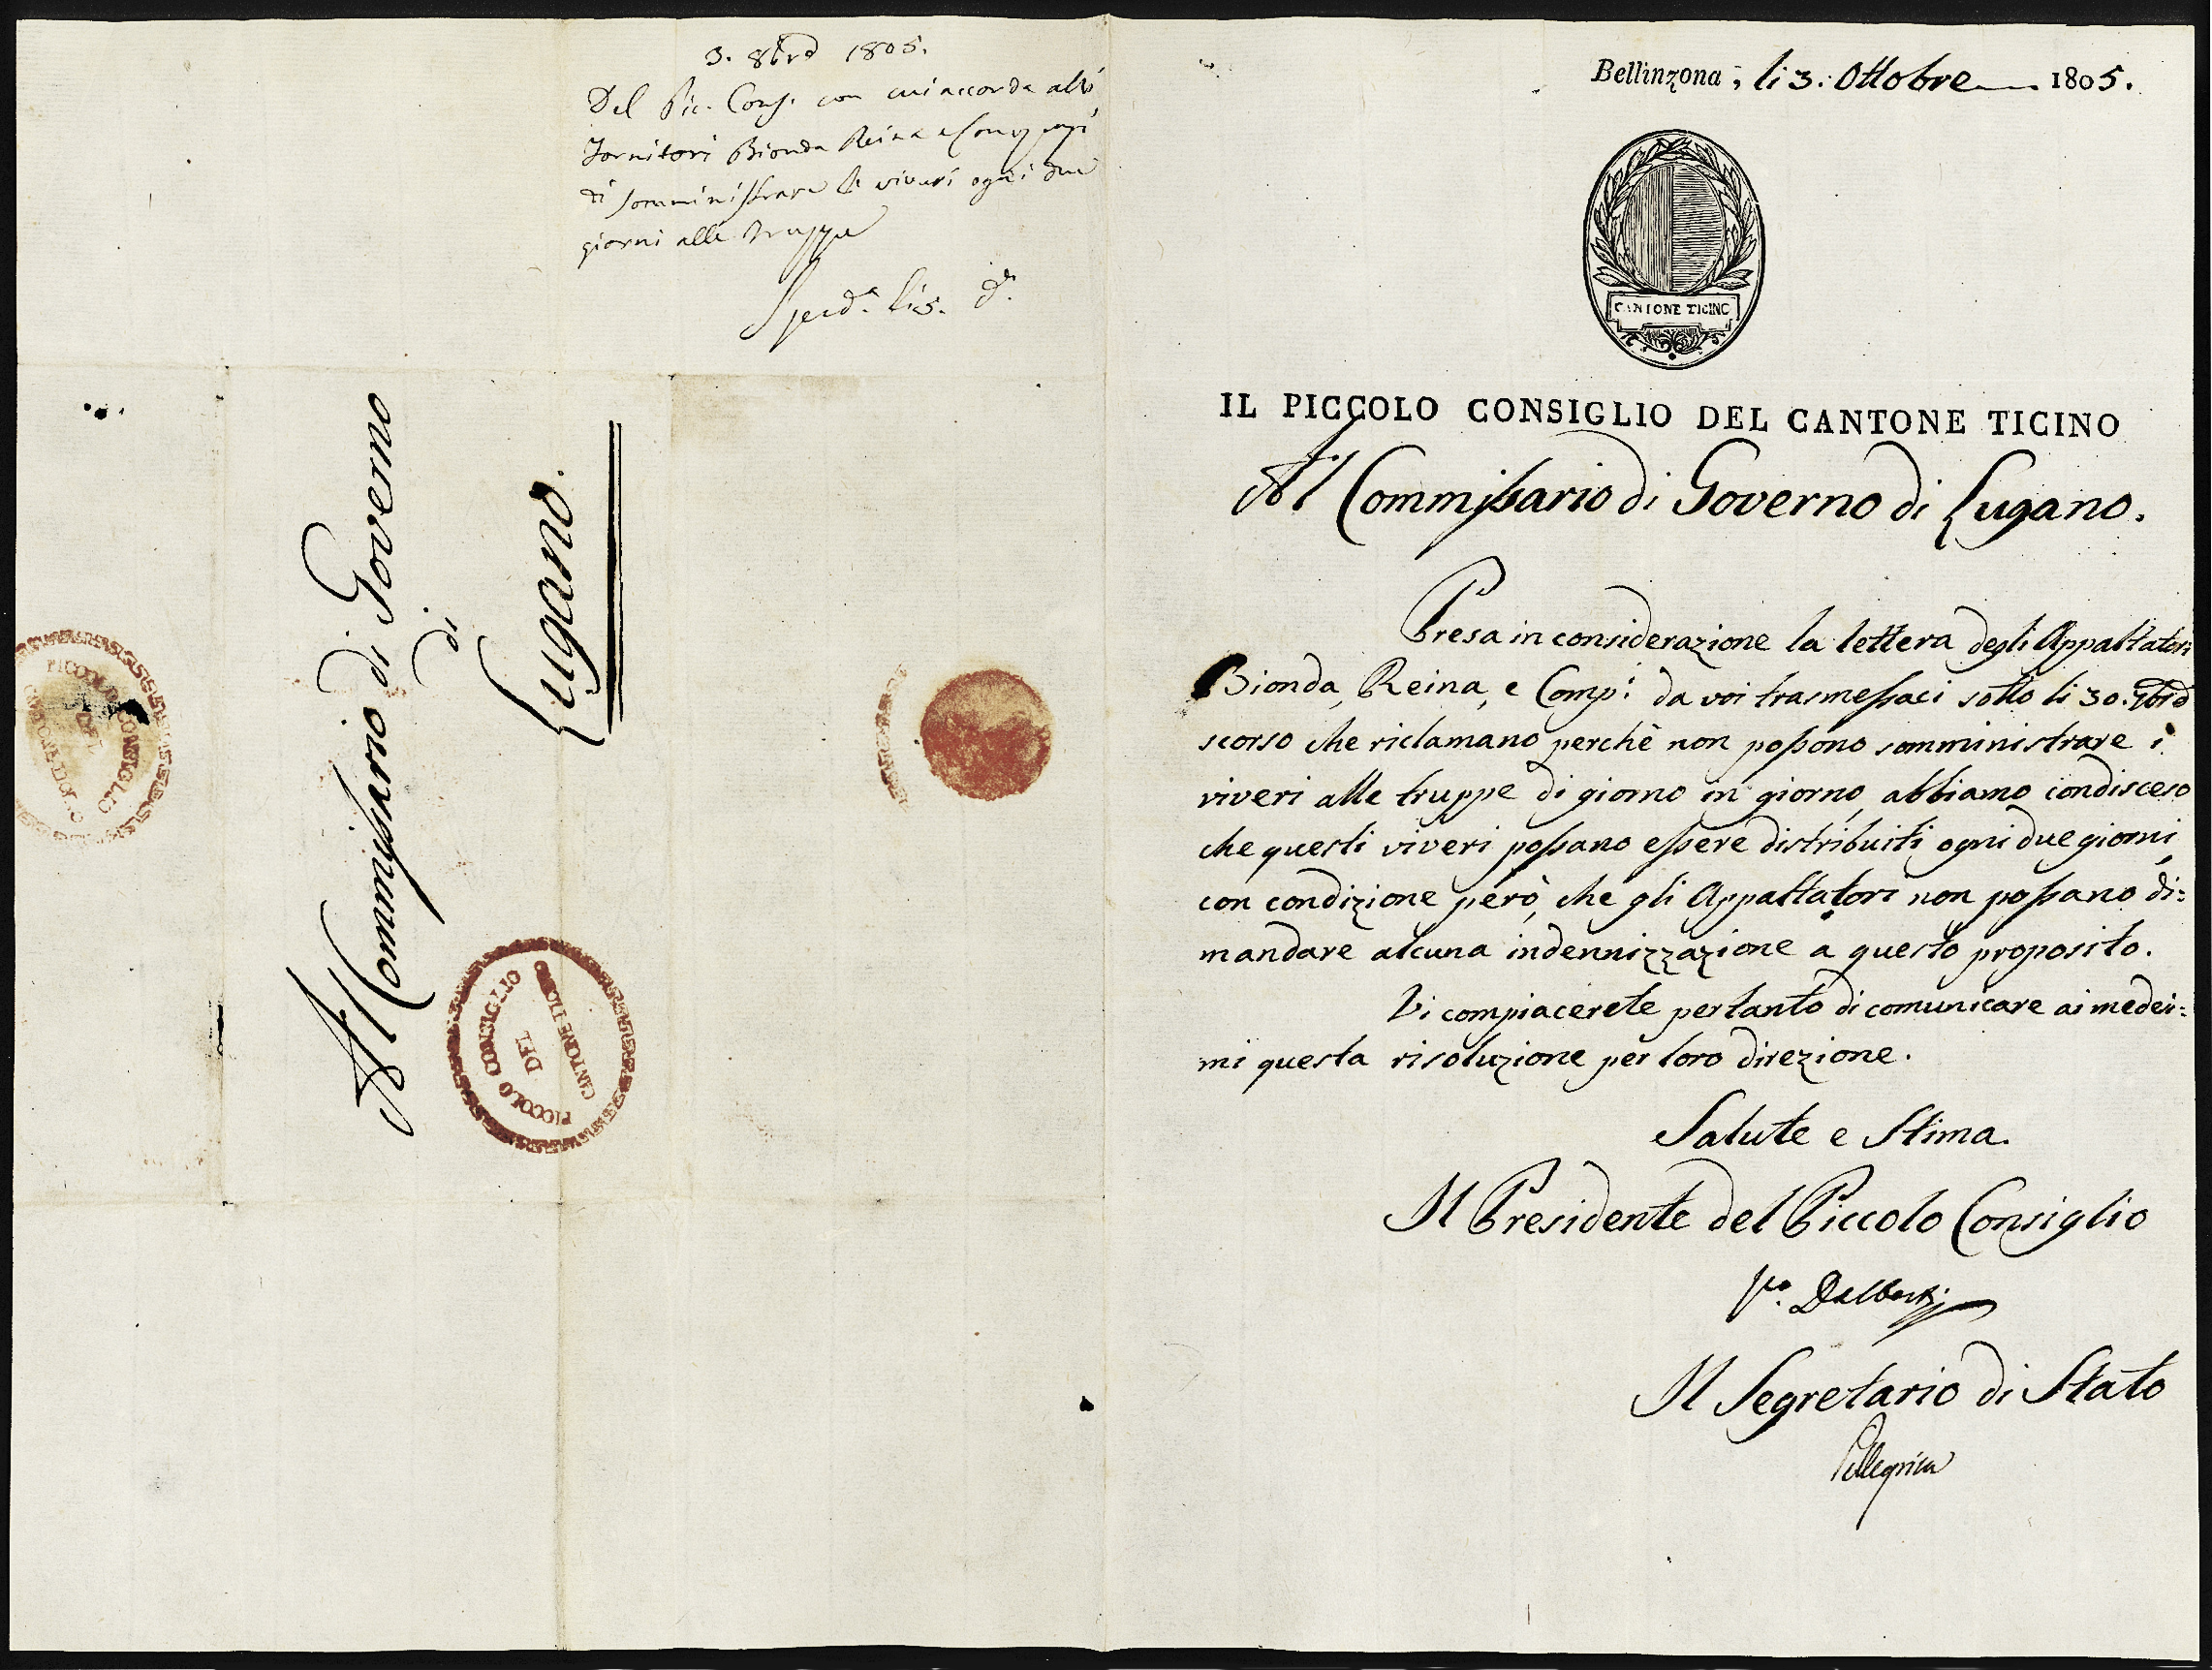 3. 8brē 1805.
Del Pic. Cons. con cui accorda alli
Fornitori Bionda Reina e Compagni
di somministrare li viveri ogni due
giorni alle truppe
li 5. dº.
Al Commissario di Governo
di
Lugano.
PICCOLO CONSIGLIO
DEL
CANTONE TICINO
PICCOLO CONSIGLIO
DEL
CANTONE TICINO
Bellinzona, li 3. Ottobre 1805.
CANTONE TICINO
IL PICCOLO CONSIGLIO DEL CANTONE TICINO
Al Commissario di Governo di Lugano.
Presa in considerazione la lettera degli Appaltatori
Bionda, Reina, e Comp.i da voi trasmessaci sotto li 30. 7brē
scorso che riclamano perchè non possono somministrare i
viveri alle truppe di giorno in giorno, abbiamo condisceso
che questi viveri possano essere distribuiti ogni due giorni,
con condizione però, che gli Appaltatori non possano di=
mandare alcuna indennizzazione a questo proposito.
Vi compiacerete pertanto di comunicare ai medes=
mi questa risoluzione per loro direzione.
Salute e Stima.
Il Presidente del Piccolo Consiglio
Dalberti
Il Segretario di Stato
Pellegrini